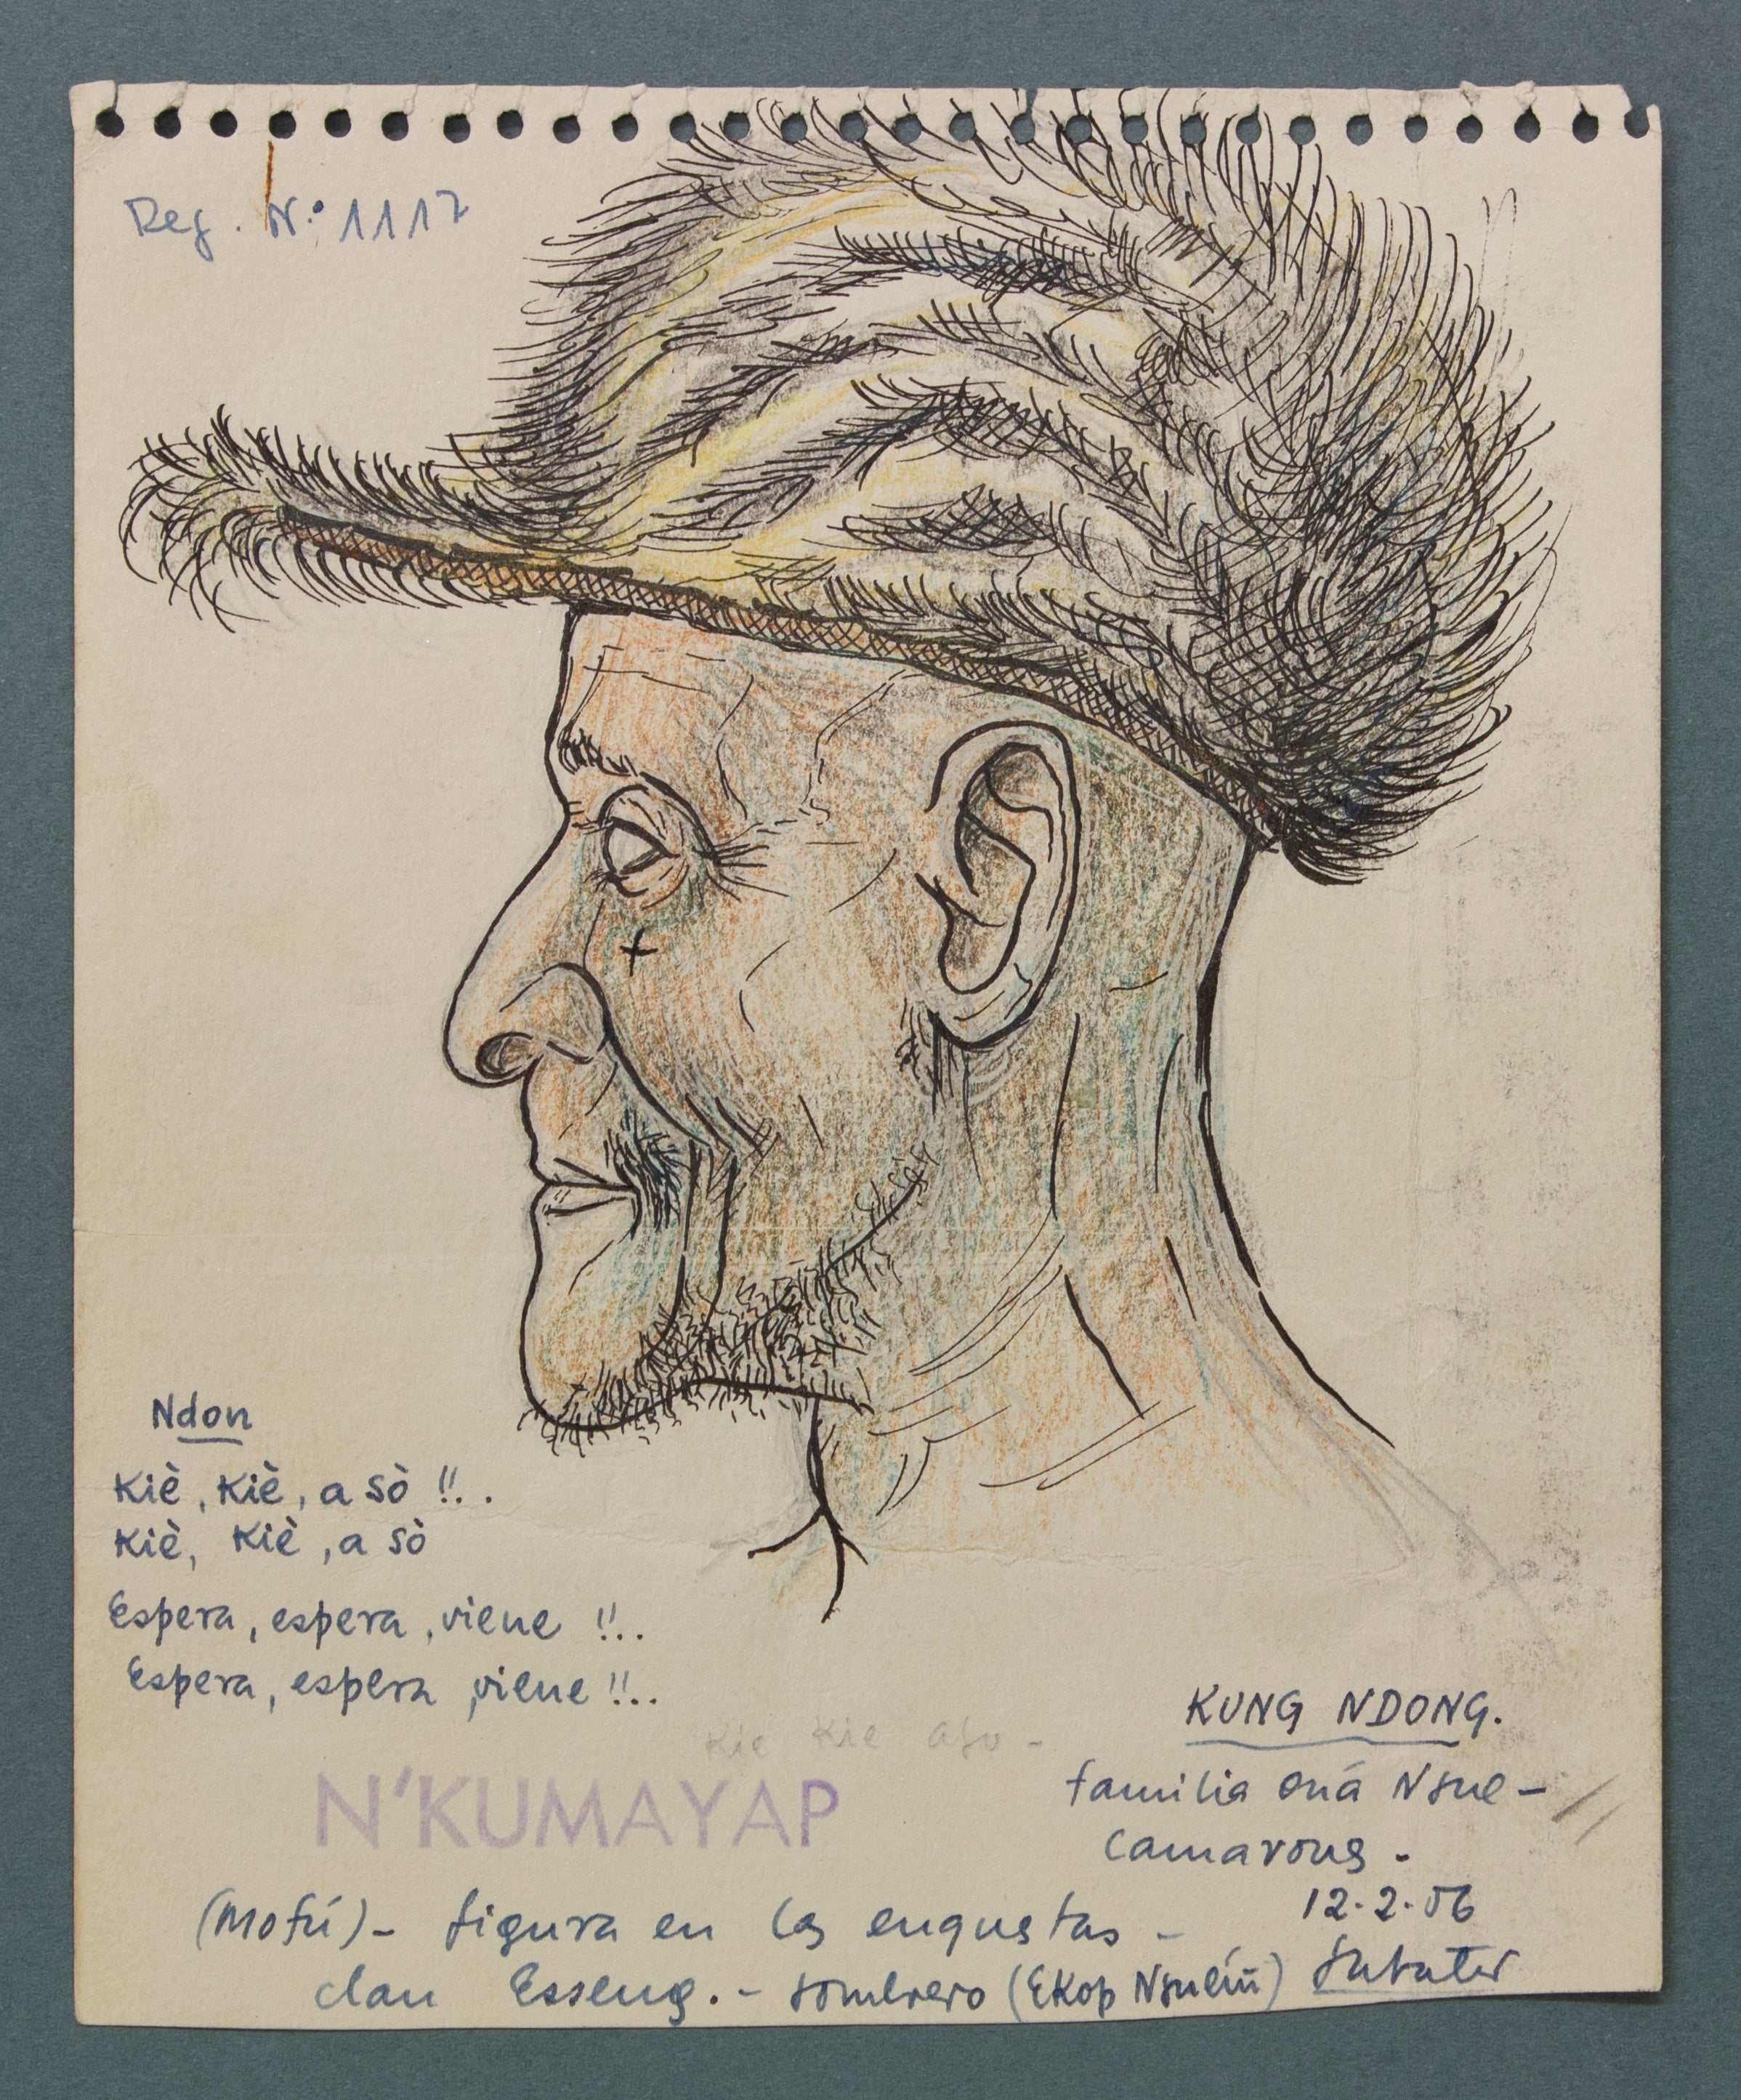 Reg. Nº 1117
Ndon
Kiè, Kiè, a sò !!..
Kiè, Kiè, a sò
Espera, espera, viene !!..
Espera, espera, viene !!..
Kie Kie aso -
N'KUMAYAP
KUNG NDONG.
familia oná Nsue -
Camarous -
12-2-56
(Mofú) - figura en las enquestas -
clan Esseng. - sombrero (EKop Nsuéiñ)
Sabater